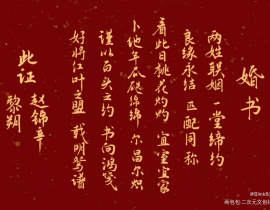 婚书
两姓联姻 一堂缔约
良缘永结 匹配同称
看此日桃花灼灼 宜室宜家
卜他年瓜瓞绵绵 尔昌尔炽
谨以白头之约 书向鸿笺
好将红叶之盟 载明鸳谱
此证
赵锦辛
黎朔